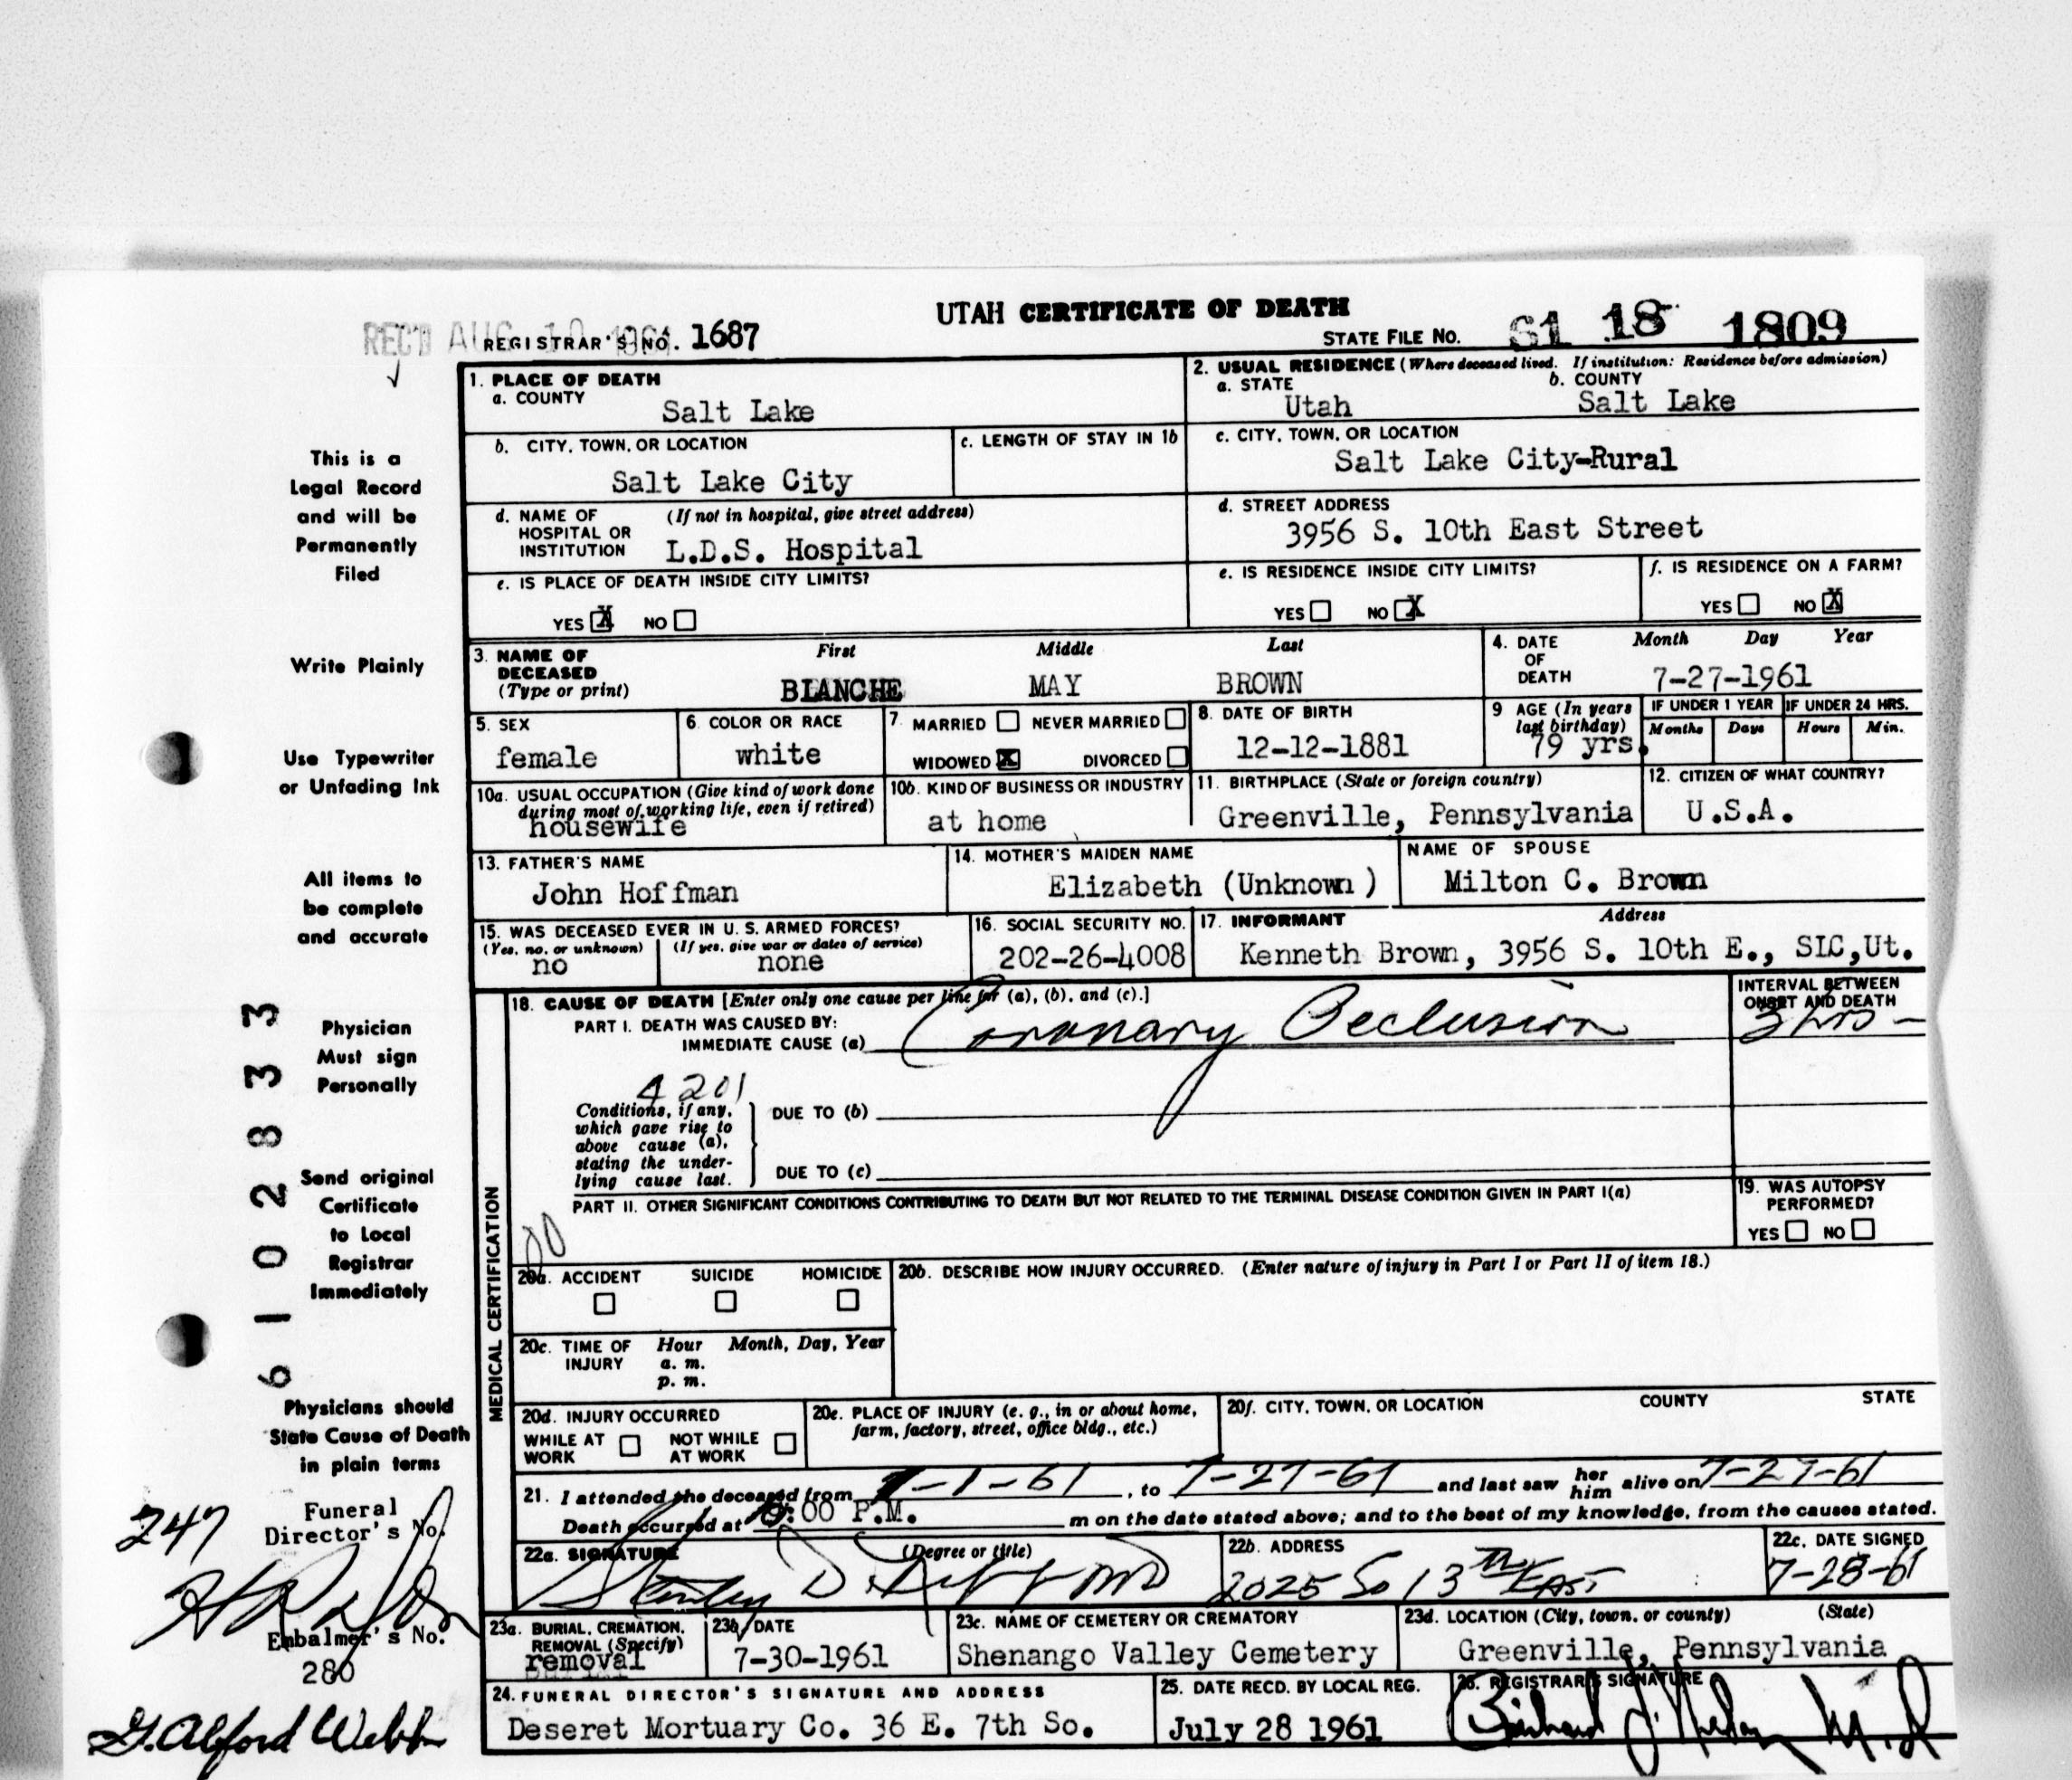 UTAH CERTIFICATE OF DEATH
REC'D AUG 10 1961
REGISTRAR'S NO. 1687
STATE FILE No. 61 18 1809
1. PLACE OF DEATH
a. COUNTY
Salt Lake
2. USUAL RESIDENCE (Where deceased lived. If institution: Residence before admission)
a. STATE b. COUNTY
Utah Salt Lake
b. CITY, TOWN, OR LOCATION
Salt Lake City
c. LENGTH OF STAY IN 1b
c. CITY, TOWN, OR LOCATION
Salt Lake City-Rural
d. NAME OF HOSPITAL OR INSTITUTION (If not in hospital, give street address)
L.D.S. Hospital
d. STREET ADDRESS
3956 S. 10th East Street
e. IS PLACE OF DEATH INSIDE CITY LIMITS?
YES X NO
e. IS RESIDENCE INSIDE CITY LIMITS?
YES NO X
f. IS RESIDENCE ON A FARM?
YES NO X
3. NAME OF DECEASED (Type or print)
First Middle Last
BLANCHE MAY BROWN
4. DATE OF DEATH
Month Day Year
7-27-1961
5. SEX
female
6. COLOR OR RACE
white
7. MARRIED NEVER MARRIED
WIDOWED X DIVORCED
8. DATE OF BIRTH
12-12-1881
9 AGE (In years last birthday)
79 yrs.
IF UNDER 1 YEAR
Months Days
IF UNDER 24 HRS.
Hours Min.
10a. USUAL OCCUPATION (Give kind of work done during most of working life, even if retired)
housewife
10b. KIND OF BUSINESS OR INDUSTRY
at home
11. BIRTHPLACE (State or foreign country)
Greenville, Pennsylvania
12. CITIZEN OF WHAT COUNTRY?
U.S.A.
13. FATHER'S NAME
John Hoffman
14. MOTHER'S MAIDEN NAME
Elizabeth (Unknown)
NAME OF SPOUSE
Milton C. Brown
15. WAS DECEASED EVER IN U. S. ARMED FORCES?
(Yes, no, or unknown) (If yes, give war or dates of service)
no none
16. SOCIAL SECURITY NO.
202-26-4008
17. INFORMANT Address
Kenneth Brown, 3956 S. 10th E., SLC,Ut.
18. CAUSE OF DEATH [Enter only one cause per line for (a), (b), and (c).]
PART I. DEATH WAS CAUSED BY:
IMMEDIATE CAUSE (a) Coronary Occlusion
INTERVAL BETWEEN ONSET AND DEATH
3 hrs -
4201
Conditions, if any, which gave rise to above cause (a), stating the under-lying cause last.
DUE TO (b)
DUE TO (c)
PART II. OTHER SIGNIFICANT CONDITIONS CONTRIBUTING TO DEATH BUT NOT RELATED TO THE TERMINAL DISEASE CONDITION GIVEN IN PART I(a)
19. WAS AUTOPSY PERFORMED?
YES NO
MEDICAL CERTIFICATION
20a. ACCIDENT SUICIDE HOMICIDE
20b. DESCRIBE HOW INJURY OCCURRED. (Enter nature of injury in Part I or Part II of item 18.)
20c. TIME OF INJURY Hour Month, Day, Year
a. m.
p. m.
20d. INJURY OCCURRED
WHILE AT WORK NOT WHILE AT WORK
20e. PLACE OF INJURY (e. g., in or about home, farm, factory, street, office bldg., etc.)
20f. CITY, TOWN, OR LOCATION COUNTY STATE
21. I attended the deceased from 7-1-61, to 7-27-61 and last saw her him alive on 7-27-61
Death occurred at :00 P.M. m on the date stated above; and to the best of my knowledge, from the causes stated.
22a. SIGNATURE (Degree or title)
Stanley D. MD
22b. ADDRESS
2025 So 13th EAST
22c. DATE SIGNED
7-28-61
23a. BURIAL, CREMATION, REMOVAL (Specify)
removal
23b. DATE
7-30-1961
23c. NAME OF CEMETERY OR CREMATORY
Shenango Valley Cemetery
23d. LOCATION (City, town, or county) (State)
Greenville, Pennsylvania
24. FUNERAL DIRECTOR'S SIGNATURE AND ADDRESS
Deseret Mortuary Co. 36 E. 7th So.
25. DATE RECD. BY LOCAL REG.
July 28 1961
26. REGISTRAR'S SIGNATURE
This is a
Legal Record
and will be
Permanently
Filed
Write Plainly
Use Typewriter
or Unfading Ink
All items to
be complete
and accurate
Physician
Must sign
Personally
Send original
Certificate
to Local
Registrar
Immediately
Physicians should
State Cause of Death
in plain terms
6102833
247
Funeral
Director's No.
Embalmer's No.
280
G. Alford Webb